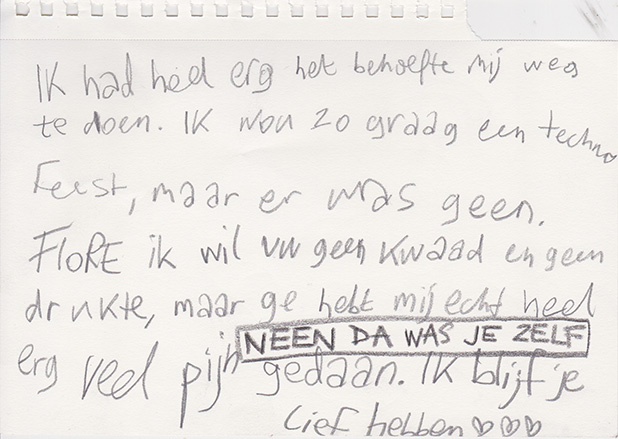 IK had heel erg het behoefte mij weg
te doen. IK wou zo graag een techno
Feest, maar er was geen.
FLORE ik wil uw geen kwaad en geen
drukte, maar ge hebt mij echt heel
NEEN DA WAS JE ZELF
erg veel pijn gedaan. IK blijf je
lief hebben ♡♡♡